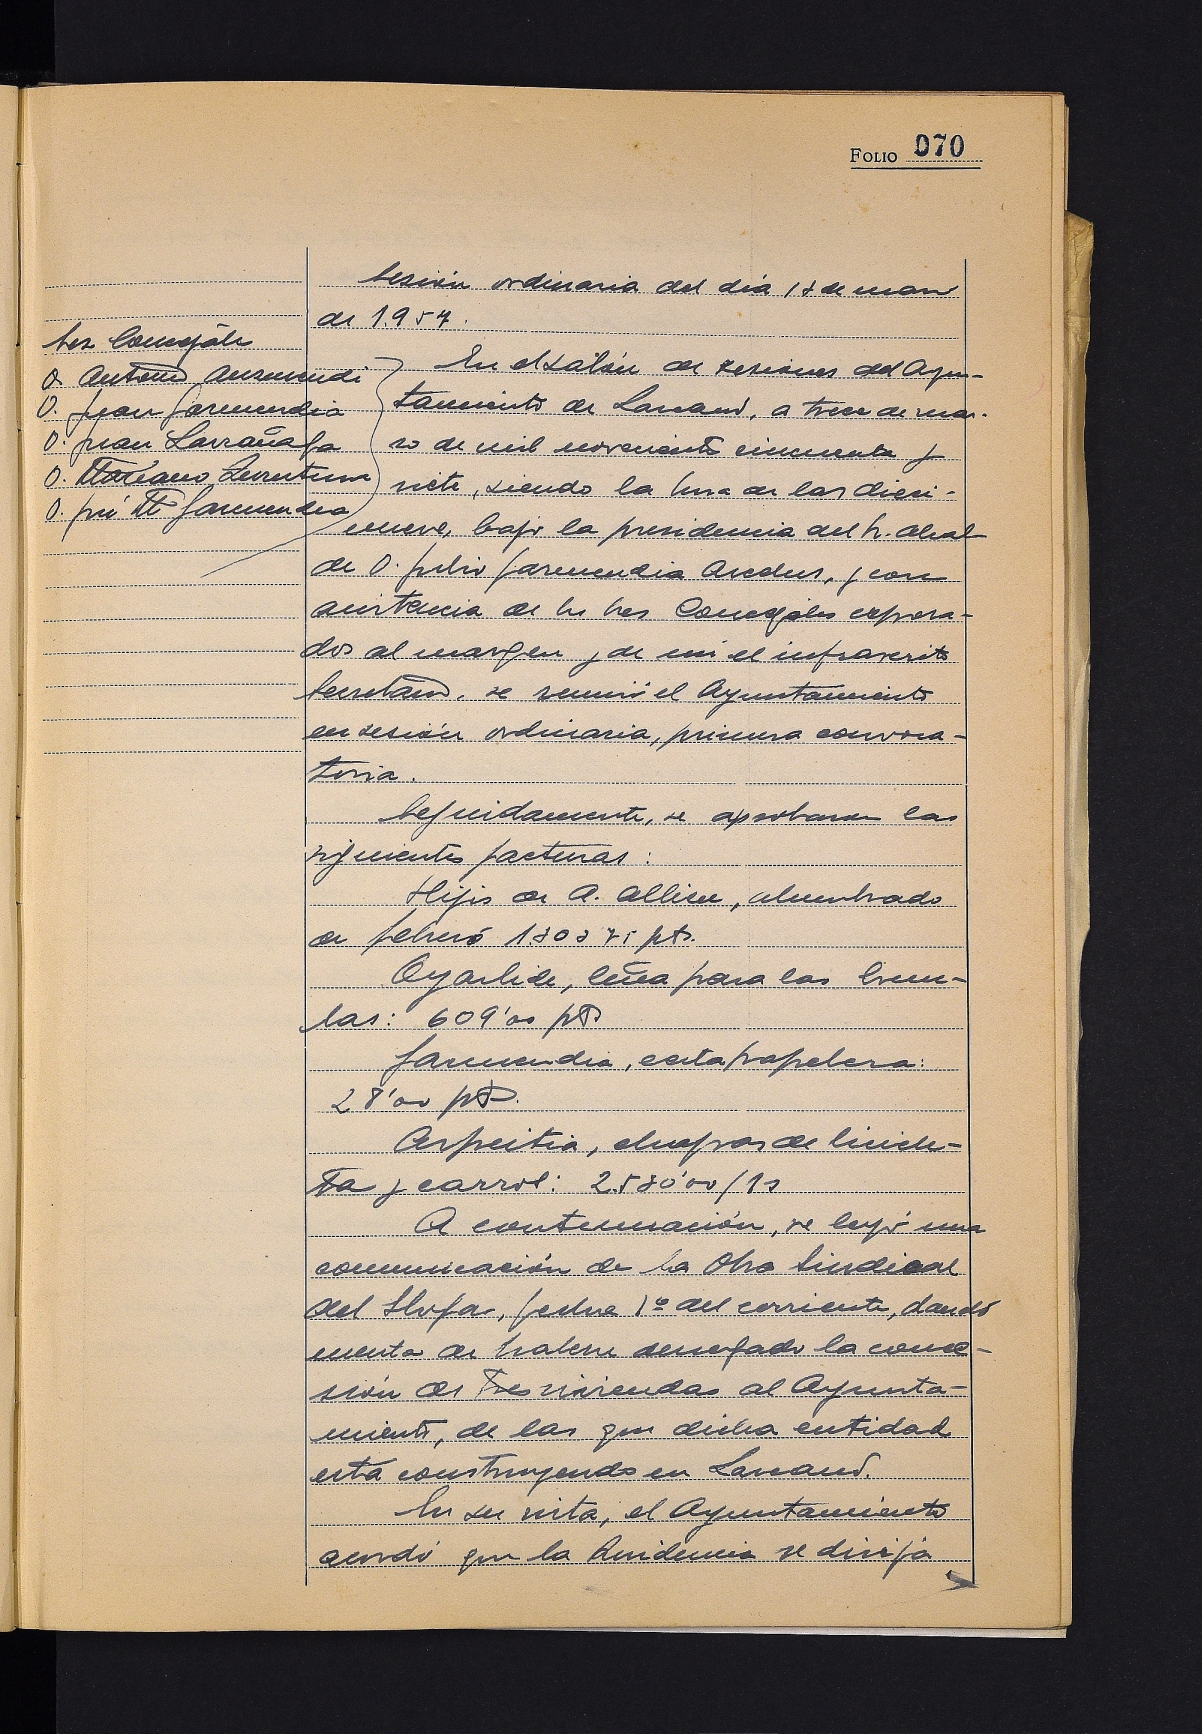 FOLIO 070
Sesión ordinaria del día 13 de marzo
de 1.957.
Sres Concejales
D. Antonio Aurmendi
D. Juan Garmendia
D. Juan Larrañaga
D. Mariano
D. José Mª Garmendia
En el salón de sesiones del Ayun-
tamiento de Lazcano, a trece de mar-
zo de mil novecientos cincuenta y
siete, siendo la hora de las dieci-
nueve, bajo la presidencia del Sr. Alcal
de D. Julio Garmendia, y con
asistencia de los Sres Concejales expresa-
dos al margen y de mi el infrascrito
Secretario, se reunió el Ayuntamiento
en sesión ordinaria, primera convoca-
toria.
Seguidamente, se aprobaron las
siguientes facturas:
Hijos de A. Albisu, alumbrado
de febrero pts.
Oyarbide, leña para las Escue-
las: 609'00 pts
Garmendia, cesta papelera:
28'00 pts.
Azpeitia, chapas de bicicle-
ta y carros: 2.530'00 pts
A continuación, se leyó una
comunicación de la Obra Sindical
del Hogar, fecha 1º del corriente, dando
cuenta de haberse denegado la conce-
sión de tres viviendas al Ayunta-
miento, de las que dicha entidad
está construyendo en Lazcano.
En su vista, el Ayuntamiento
acordó que la Presidencia se dirija